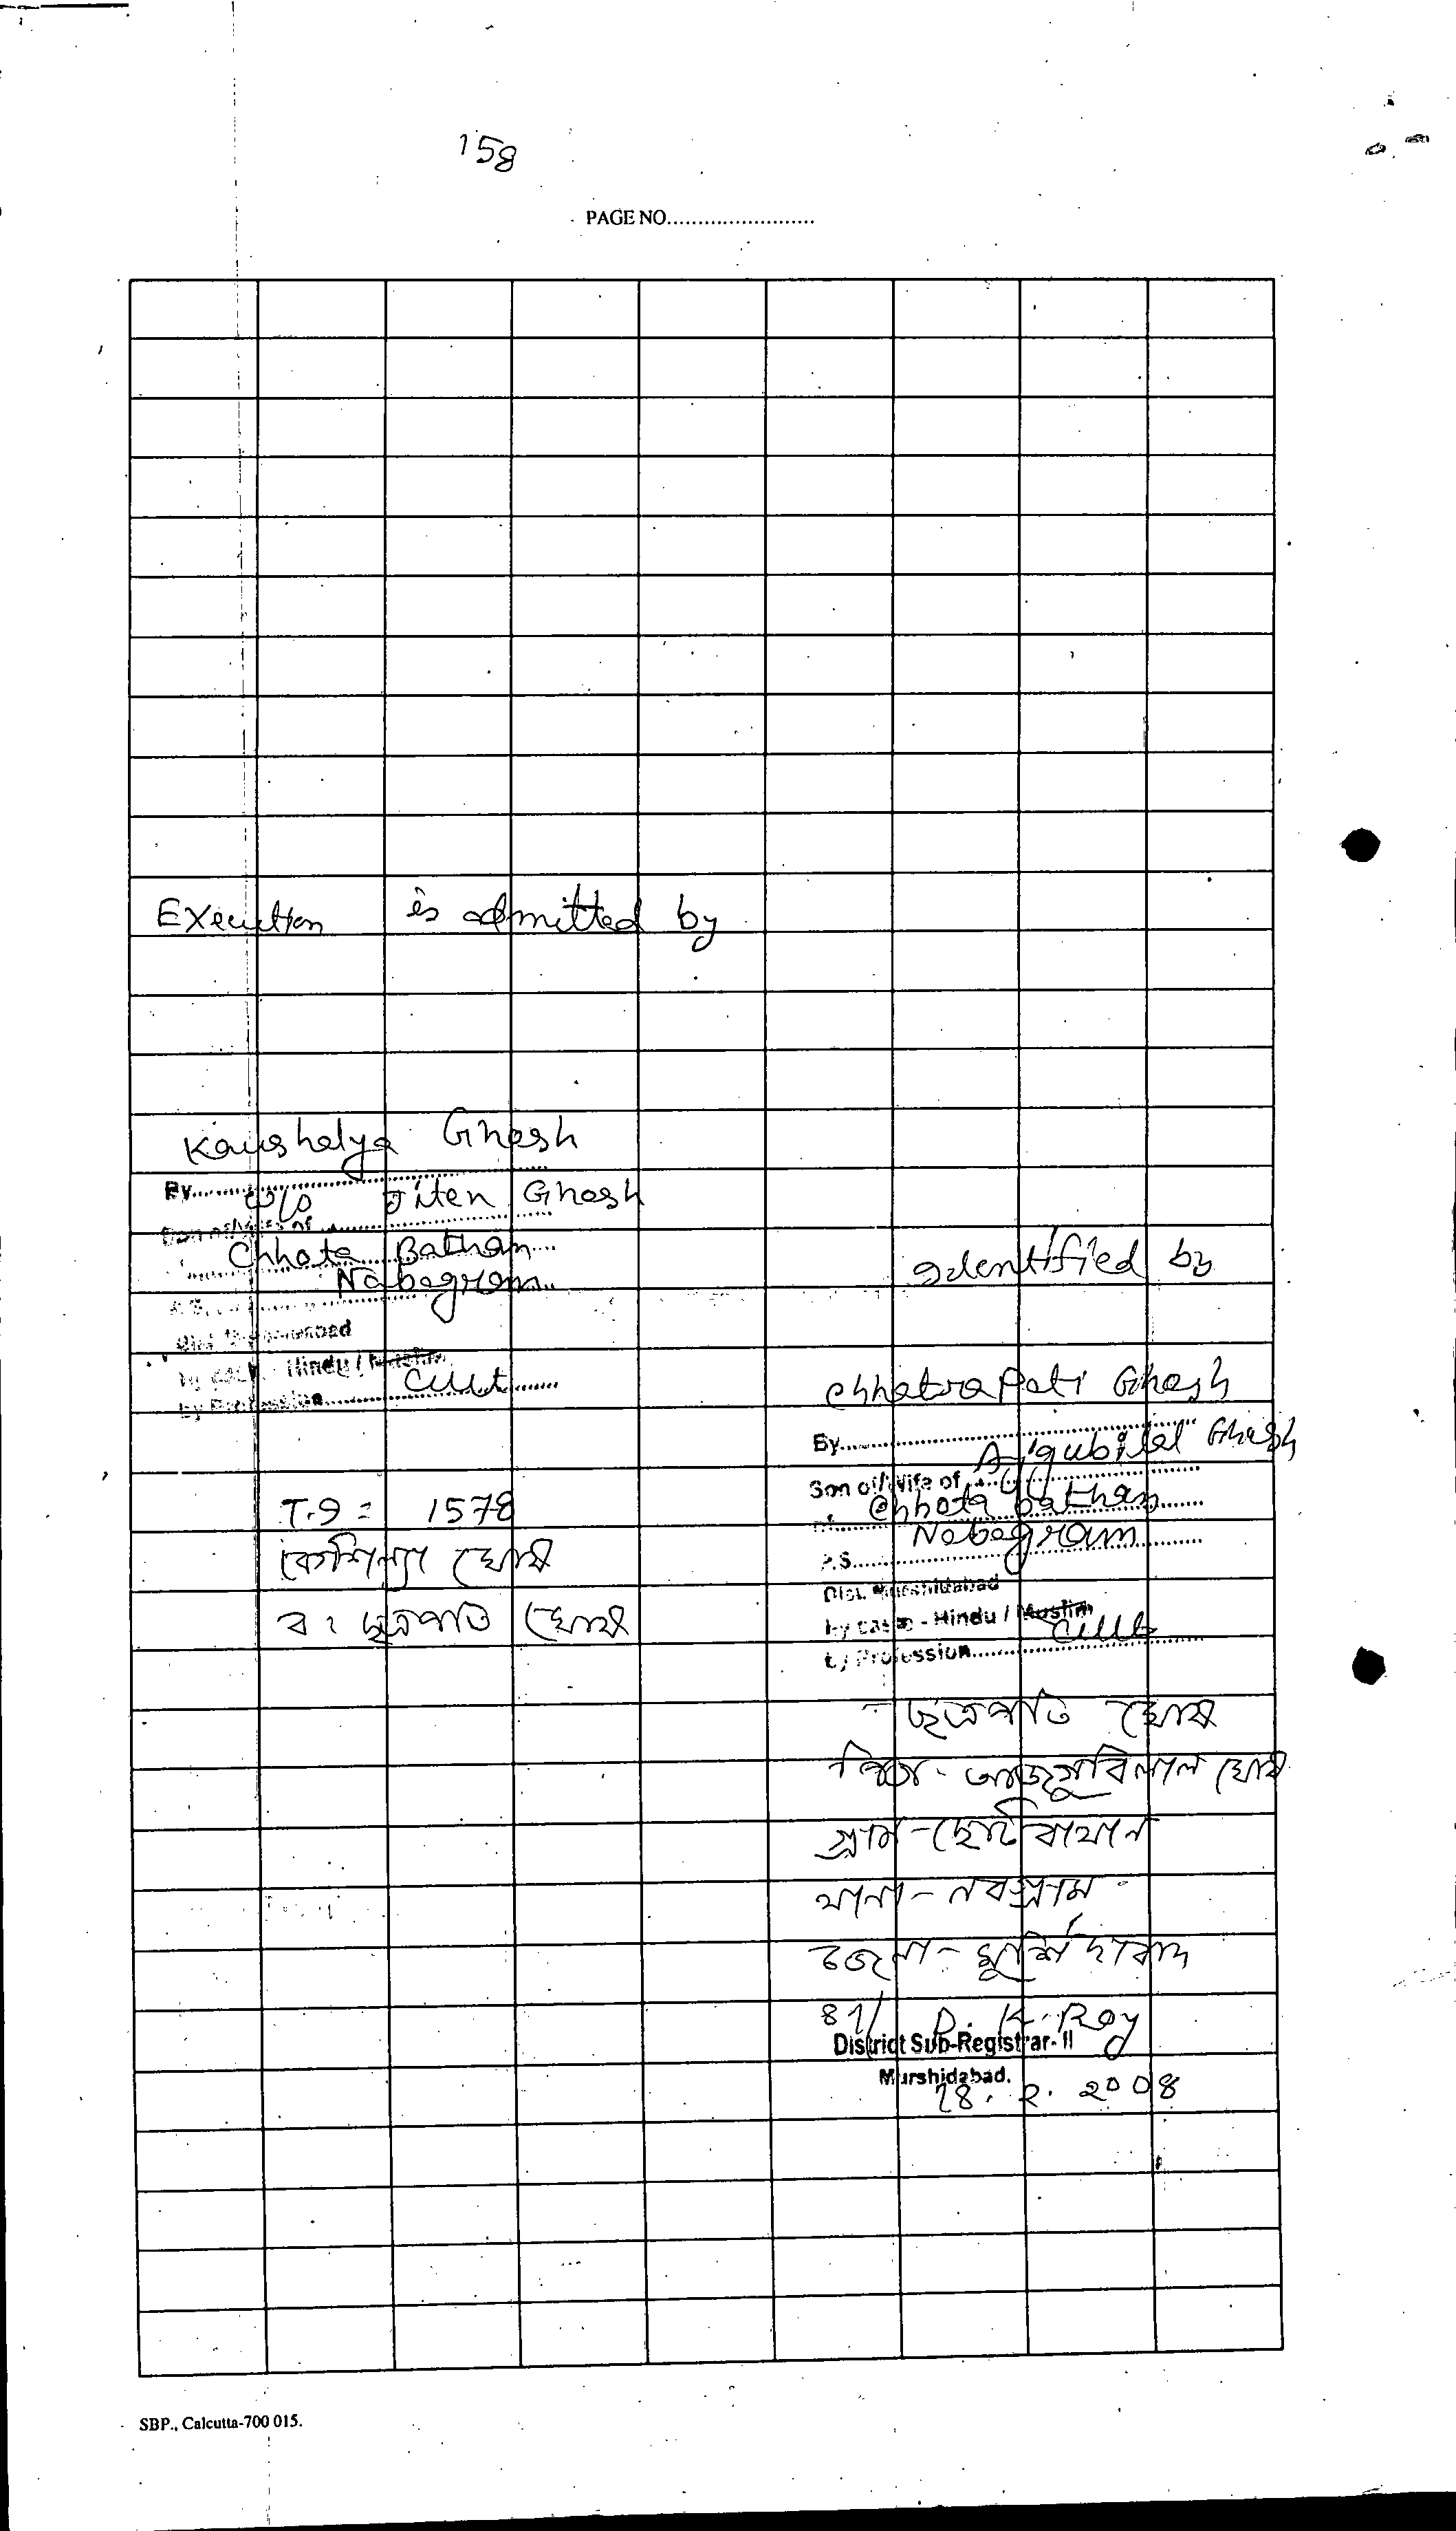 158
PAGE NO........................
Execution is admitted by
Kaushalya Ghosh
By........................
w/o Jiten Ghosh
Chhota Bathan
Nabagram
Hindu / Muslim
by Profession............ Cult
T.9 = 1578
কৌশল্যা ঘোষ
ব: ছত্রপতি ঘোষ
Identified by
Chhatrapati Ghosh
By........................
Ajgubilal Ghosh
Son of/Wife of
Chhota Bathan
Nabagram
P.S........................
Dist. Murshidabad
by caste - Hindu / Muslim
by Profession............ Cult
ছত্রপতি ঘোষ
পিতা - আজগুবিলাল ঘোষ
গ্রাম - ছোটবাথান
থানা - নবগ্রাম
জেলা - মুর্শিদাবাদ
D. K. Roy
District Sub-Registrar-II
Murshidabad.
28. 2. 2008
SBP., Calcutta-700 015.